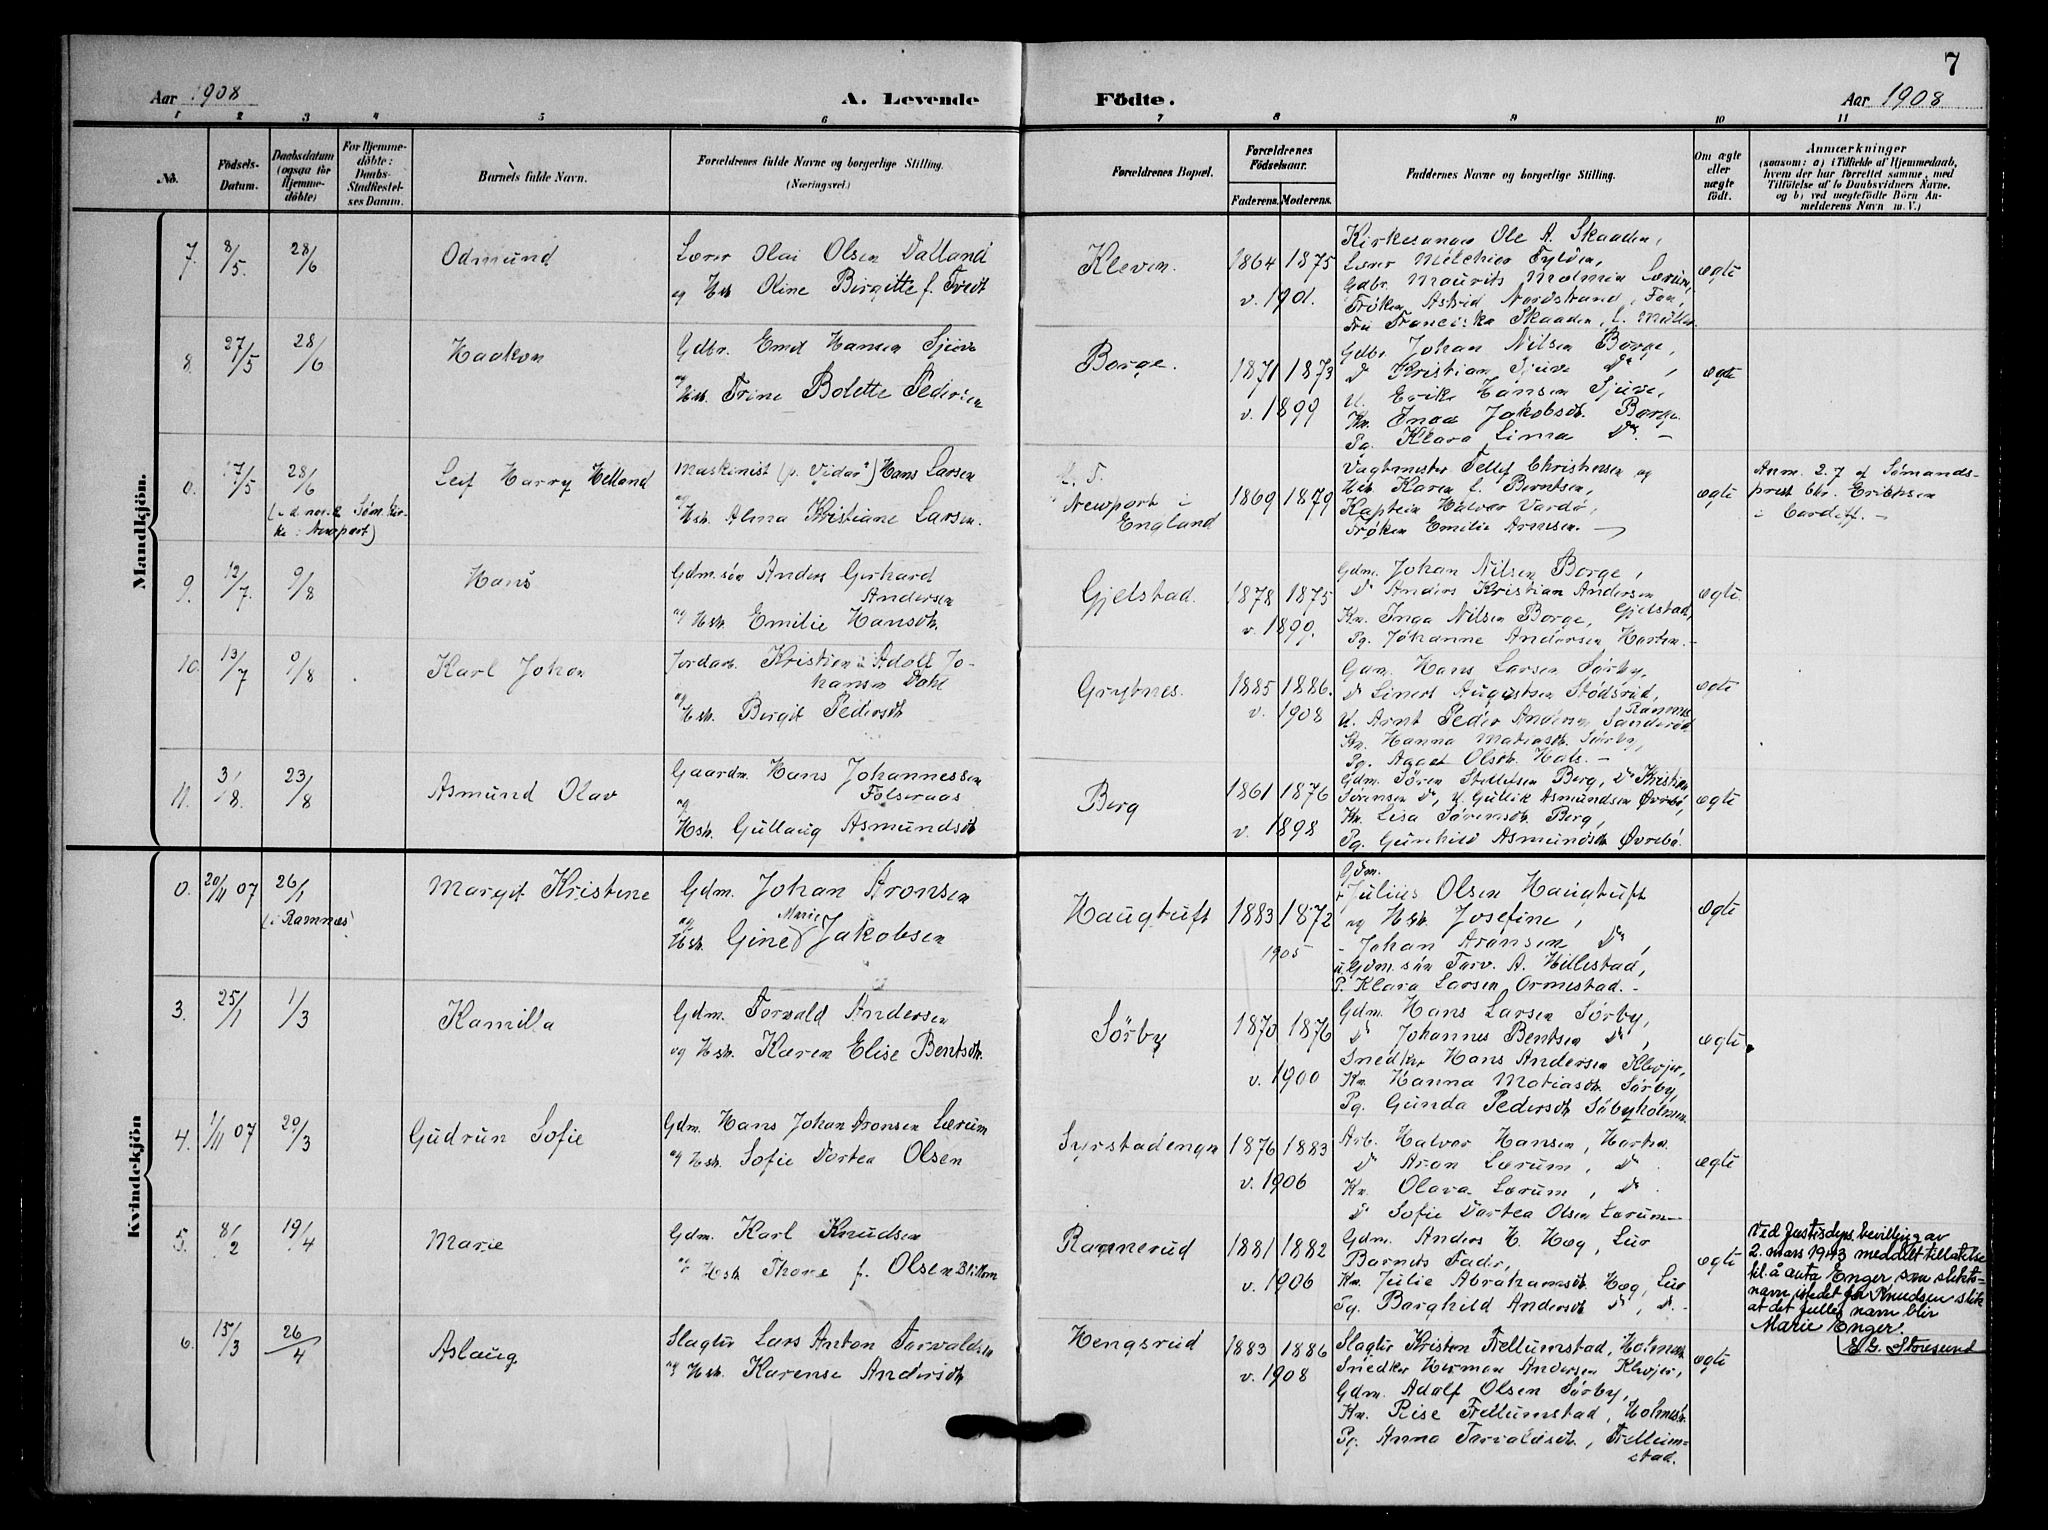 7
Aar 1908
A. Levende
Födte.
Aar 1908
1 2 3 4 5 6 7 8 9 10 11
No.
Födsels-
Datum.
Daabsdatum
(ogsaa for
Hjemme-
döbte)
For Hjemme-
döbte:
Daabs-
Stadfæstel-
ses Datum.
Barnets fulde Navn.
Forældrenes fulde Navne og borgerlige Stilling.
(Næringsvei.)
Forældrenes Bopæl.
Forældrenes
Födselsaar.
Faderens. Moderens.
Faddernes Navne og borgerlige Stilling.
Om ægte
eller
uægte
födt.
Anmærkninger
(saasom: a) i Tilfælde af Hjemmedaab,
hvem der har forrettet samme, med
Tilföielse af to Daabsvidners Navne.
og b) ved uægtefödte Börn An-
melderens Navn m. V.)
Mandkjön.
7. 8/5. 28/6 Odmund
Lærer Olai Olsen Dalland
og Hst. Oline Birgitte f. Tvedt
Kleven.
1864 1875
v. 1901.
Kirkesanger Ole A. Skaaden,
Lærer Melchior Fylden,
Gdbr. Maurits Malmin Lærum,
Frøken Astrid Nordstrand, Fon,
Fru Franciska Skaaden, f. Müller
ægte
8 27/5 28/6 Haakon
Gdbr. Emil Hansen Sjuve
og Hst. Trine Bolette Pedersen
Borge.
1871 1873
v. 1899
Gdbr Johan Nilsen Borge,
Do Kristian Sjuve Do,
U. Erik Hansen Sjuve,
Kv. Inga Jakobsdt. Borge.
Pg. Klara Lima Do. -
ægte
0. 17/5 28/6
(i d. norske Søm. kir-
ke i Newport)
Leif Harry Helland
Maskinist (p. "Vidar") Hans Larsen
og Hst. Alma Kristiane Larsen.
Newport i
England
1869 1879
Vagtmester Tellef Christensen og
Hst. Karen f. Berntsen,
Kaptein Halvor Vardø,
Frøken Emilie Arnesen. -
ægte
Anm. 2.7 af Sømands-
prest Chr. Eriksen
i Cardiff. -
9. 12/7. 9/8 Hans
Gdm.søn Anders Gerhard
Andersen
og Hst. Emilie Hansdt.
Gjelstad
1878 1875
v. 1899.
Gdm. Johan Nilsen Borge,
Do Anders Kristian Andersen
Gjelstad,
Kv. Inga Nilsen Borge,
Pg. Johanne Andersen Horten. -
ægte.
10. 13/7 9/8 Karl Johan
Jordarb. Kristian Adolf Jo-
hansen Dahl
og Hst. Bergit Pedersdt.
Grytnes.
1885 1886.
v. 1908
Gdm. Hans Larsen Sørby,
Do Linert Augustsen Stødsrud,
Ramnes
U. Arnt Peder Andersen Sanderød
Kv. Hanna Matiasdt. Sørby,
Pg. Agaet Olsdt. Hals. -
ægte
11. 3/8. 23/8 Asmund Olav
Gaardm. Hans Johannessen
Folseraas
og Hst. Gullaug Asmundsdt
Berg
1861 1876
v. 1898
Gdm. Søren Steffetsen Berg, Do Kristian
Sørensen Do, U. Gullik Asmundsen Øvrebø,
Kv. Lisa Sørensdt. Berg,
Pg. Gunhild Asmundsdt Øvrebø.
ægte
Kvindekjön
0. 20/11 07 26/1
(i Ramnæs)
Margit Kristine
Gdm. Johan Aronsen
Marie
og Hst. Gine Jakobsen
Haugtuft
1883 1872
1905
Gdm.
Julius Olsen Haugtuft
og Hst. Josefine,
- Johan Aronsen Do,
u. Gdm.søn Torv. A. Hillestad,
P. Klara Larsen Ormestad. -
ægte
3. 25/1 1/3 Kamilla
Gdm. Torvald Andersen
og Hst. Karen Elise Bentsdt.
Sørby
1870 1876
v. 1900
Gdm. Hans Larsen Sørby,
Do Johannes Bentsen Do,
Snedker Hans Andersen Klevjer,
Kv. Hanna Matiasdt. Sørby,
Pg. Gunda Pedersdt Søbyholmen
ægte
4. 1/11 07 29/3 Gudrun Sofie
Gdm. Hans Johan Aronsen Lærum
og Hst. Sofie Dortea Olsen
Syrstadengn
1876 1883
v. 1906
Arb. Halvor Hansen, Horten.
Do Aron Lærum, Do.
Kv. Olava Lærum, Do.
Do Sofie Dortea Olsen Lærum -
ægte
5. 8/2 19/4 Marie
Gdm. Karl Knudsen
og Hst. Thore f. Olsen Blikom
Rannerud
1881 1882
v. 1906
Gdm. Anders H. Høg, Lur
Barnets Fader,
Kv. Julie Abrahamsdt. Høg, Lur
Pg. Borghild Andersdt Do, Do. -
ægte
Ved Justisdeps. bevilling av
2. mars 1943 meddelt tillatelse
til å anta Enger som slekts-
navn istedet for Knudsen slik
at det fulle navn blir
Marie Enger.
E G. Storesund
6. 15/3 26/4 Aslaug
Slagter Lars Anton Torvaldsen
og Hst. Karense Andersdt
Hengsrud
1883 1886
v. 1908
Slagter Kristen Fellumstad, Holmestr.
Snedker Herman Andersen Klevjer,
Gdm. Adolf Olsen Sørby,
Kv. Rise Fellumstad, Holmestr.
Pg. Anna Torvaldsdt., Fellum-
stad.
ægte